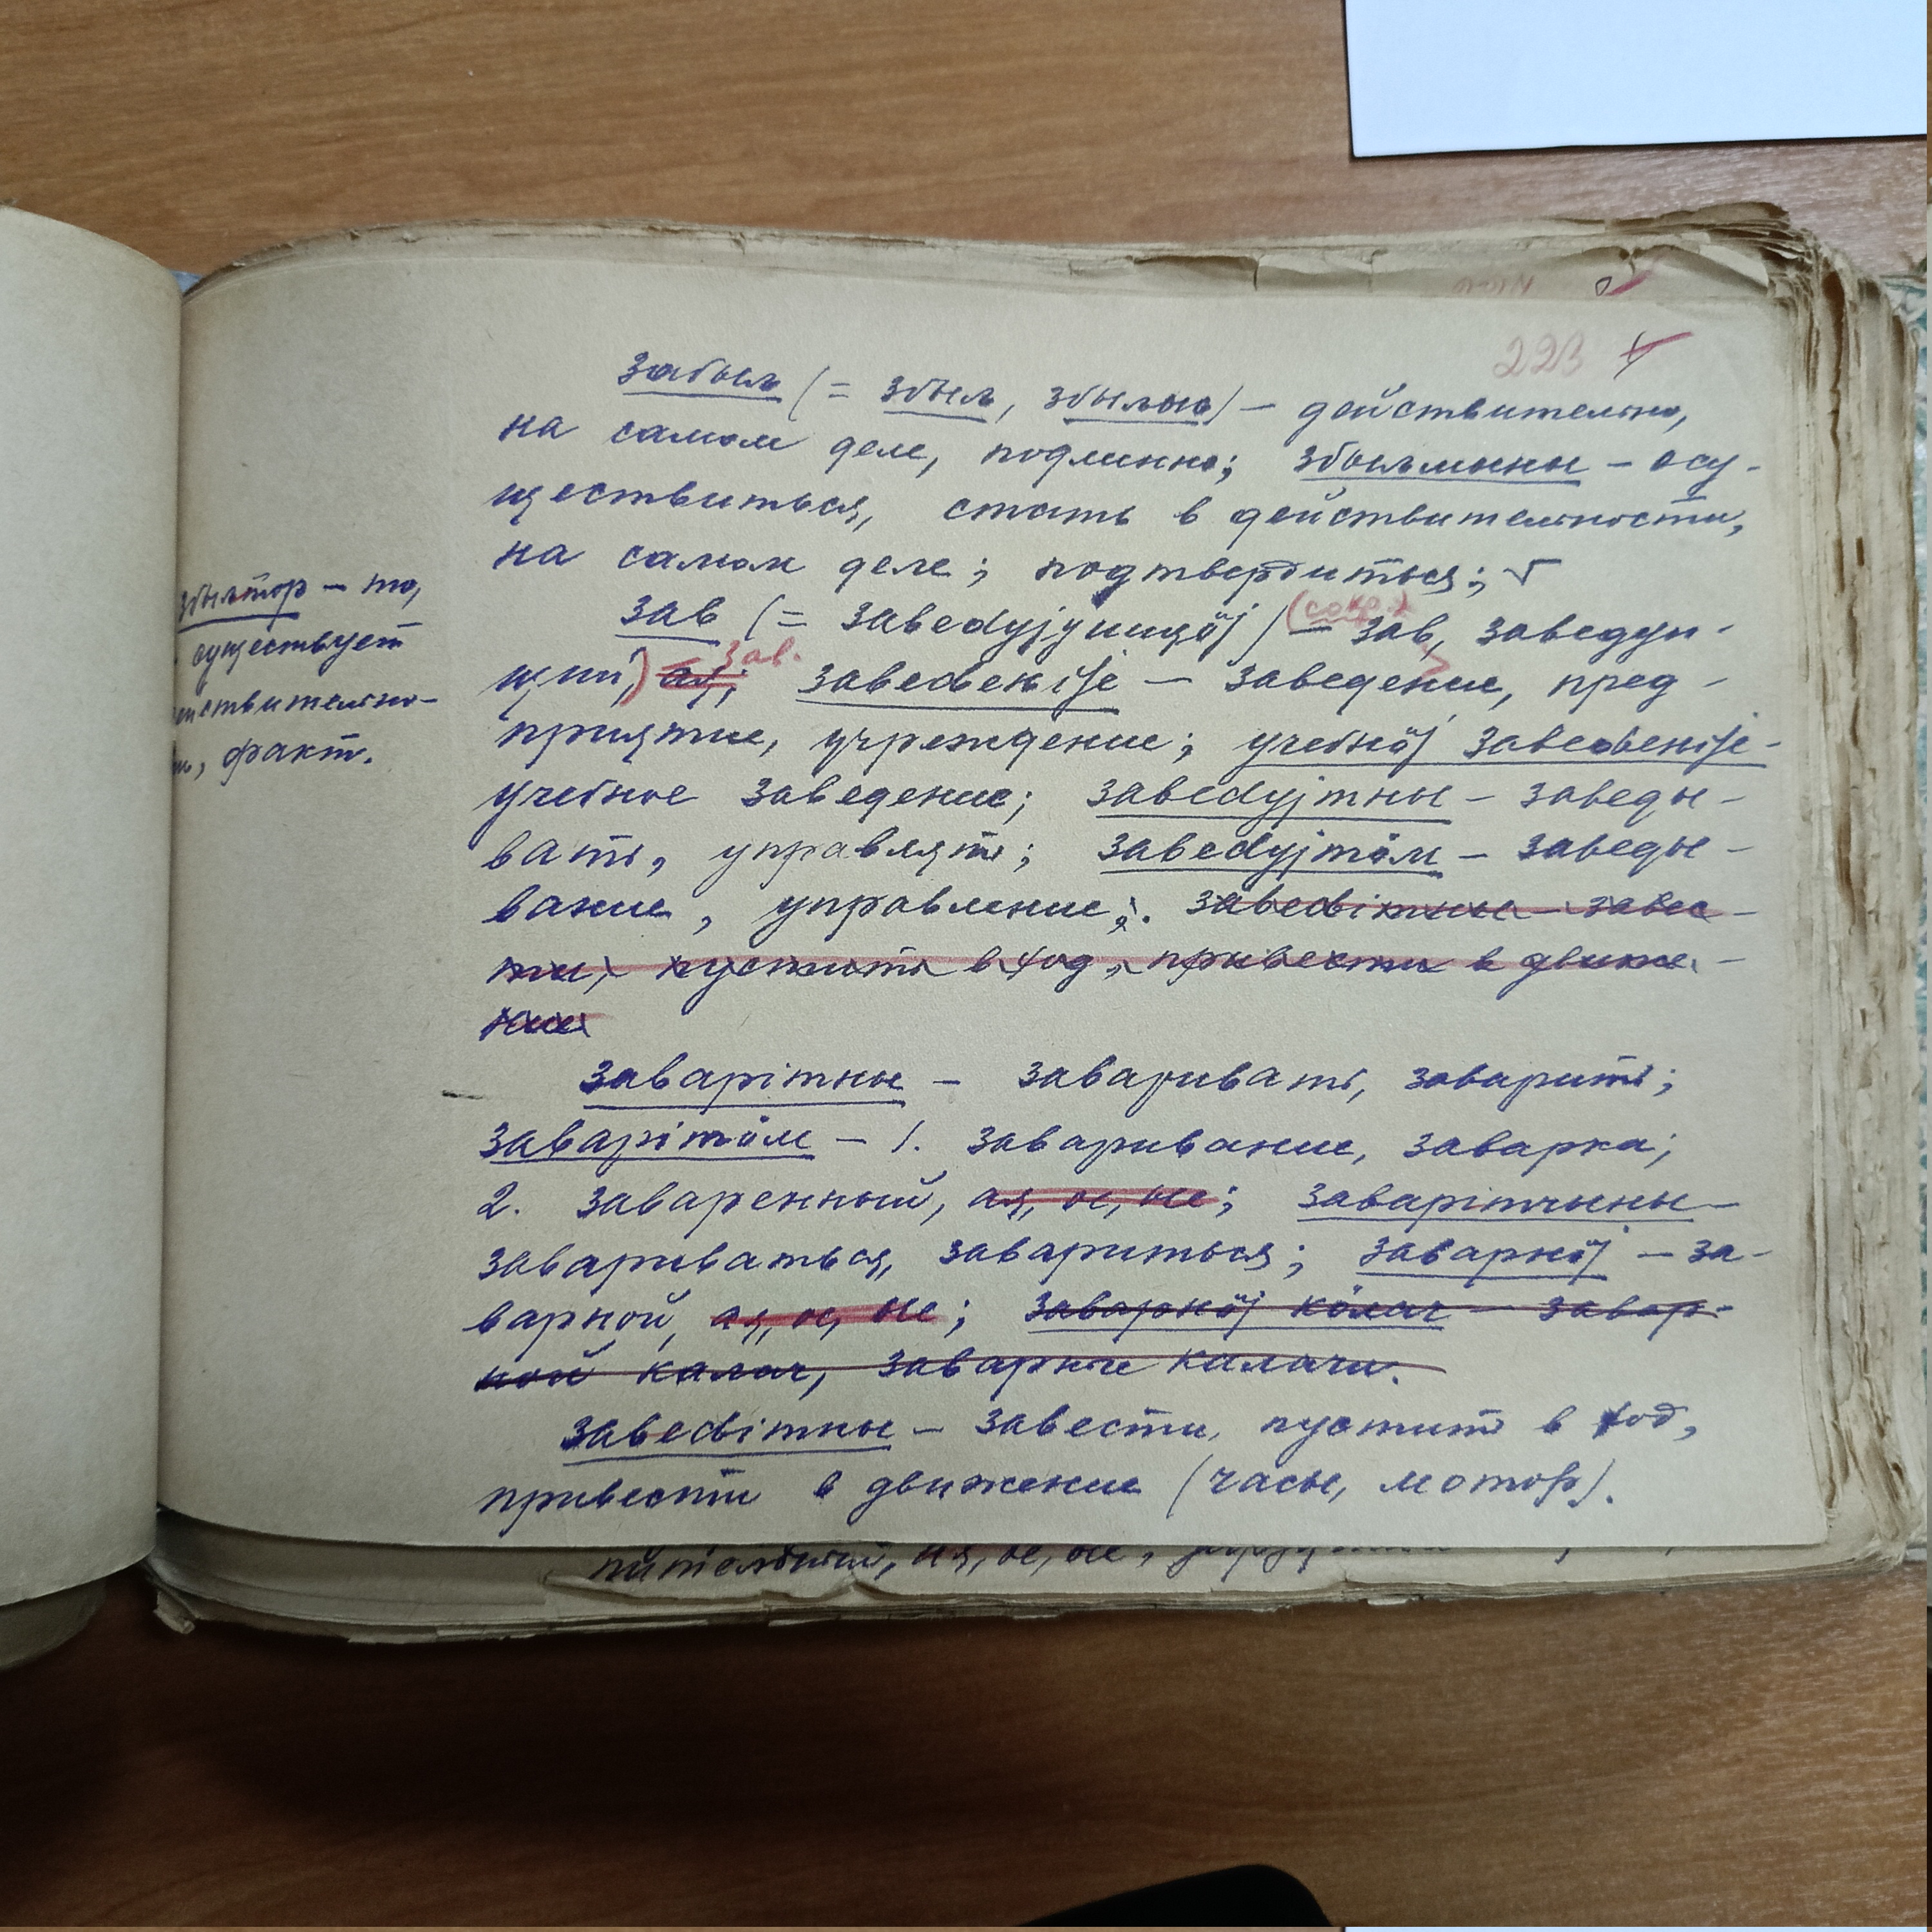 223
забыль (= збыль, збыльыс) – действительно,
на самом деле, подлинно; збыльмыны – осу-
ществиться, стать в действительности,
на самом деле; подтвердиться; √
збыльтор – то,
существует
ствительно-
факт.
зав (= заведујушщӧј) (сокр.) – зав, заведую-
щий,) ая; зав. заведеніје – заведение, пред-
приятие, учреждение; учебнӧј заведеніје –
учебное заведение; заведујтны – заведы-
вать, управлять; заведујтӧм – заведы-
вание, управление; заведітны – завес-
ти, пустить в ход, привести в движе-
ние
заварітны – заваривать, заварить;
заварітӧм – 1. заваривание, заварка;
2. заваренный, ая, ое, ые; заварітчыны –
завариваться, завариться; заварнӧј – за-
варной, ая, ое, ые; заварнӧј кӧлач – завар-
ной калач, заварные калачи.
заведітны – завести, пустить в ход,
привести в движение (часы, мотор).
ая, ое, ые,